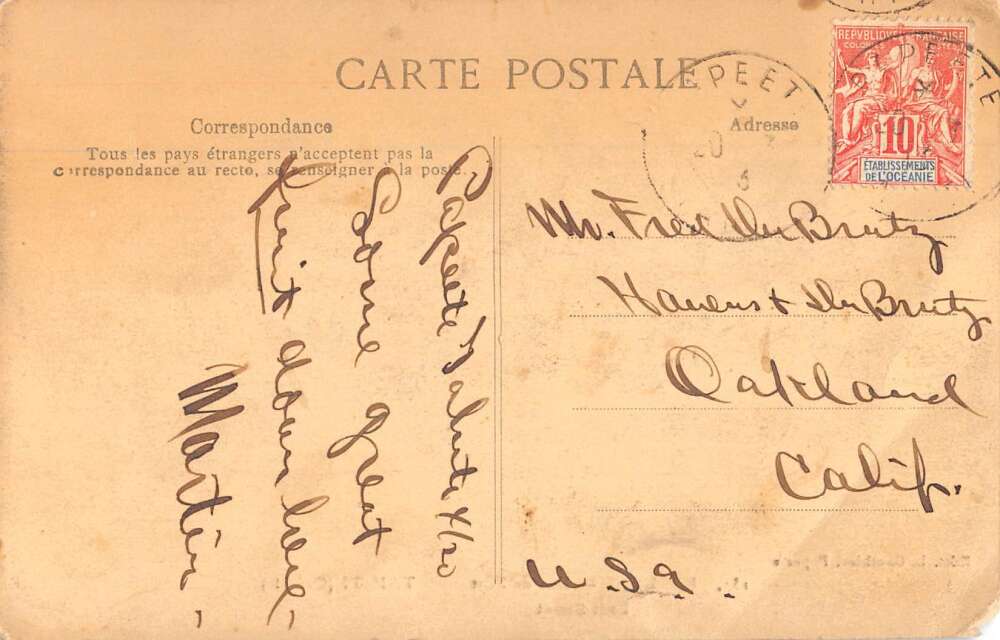 CARTE POSTALE
Correspondance
Tous les pays étrangers n'acceptent pas la
correspondance au recto, se renseigner à la poste.
Adresse
REPUBLIQUE FRANÇAISE
COLONIES POSTES
10
ÉTABLISSEMENTS
DE L'OCÉANIE
PAPEETE
Papeete Tahiti 4/20
Some great
fruit down here -
Martin -
Mr. Fred DuBrutz
Havens & DuBrutz
Oakland
Calif.
U.S.A.